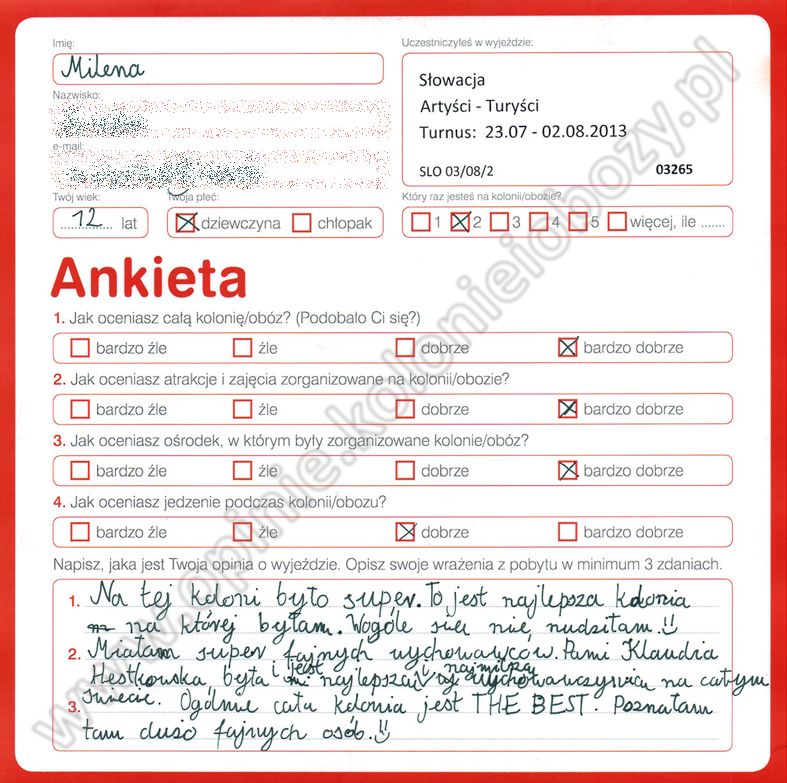 Imię:
Milena
Nazwisko:
e-mail:
Twój wiek:
12 lat
Twoja płeć:
dziewczyna chłopak
Uczestniczyłeś w wyjeździe:
Słowacja
Artyści - Turyści
Turnus: 23.07 - 02.08.2013
SLO 03/08/2 03265
Który raz jesteś na kolonii/obozie?
1 2 3 4 5 więcej, ile .......
Ankieta
1. Jak oceniasz całą kolonię/obóz? (Podobało Ci się?)
bardzo źle źle dobrze bardzo dobrze
2. Jak oceniasz atrakcje i zajęcia zorganizowane na kolonii/obozie?
bardzo źle źle dobrze bardzo dobrze
3. Jak oceniasz ośrodek, w którym były zorganizowane kolonie/obóz?
bardzo źle źle dobrze bardzo dobrze
4. Jak oceniasz jedzenie podczas kolonii/obozu?
bardzo źle źle dobrze bardzo dobrze
Napisz, jaka jest Twoja opinia o wyjeździe. Opisz swoje wrażenia z pobytu w minimum 3 zdaniach.
1. Na tej koloni było super. To jest najlepsza kolonia
na której byłam. Wogóle sie nie nudziłam.
2. Miałam super fajnych wychowawców. Pani Klaudia
Hestkowska była i jest najlepszą i najmilszą wychowawczynią na całym
świecie. Ogólnie cała kolonia jest THE BEST. Poznałam
3. tam dużo fajnych osób.
www.opinie.kolonieiobozy.pl